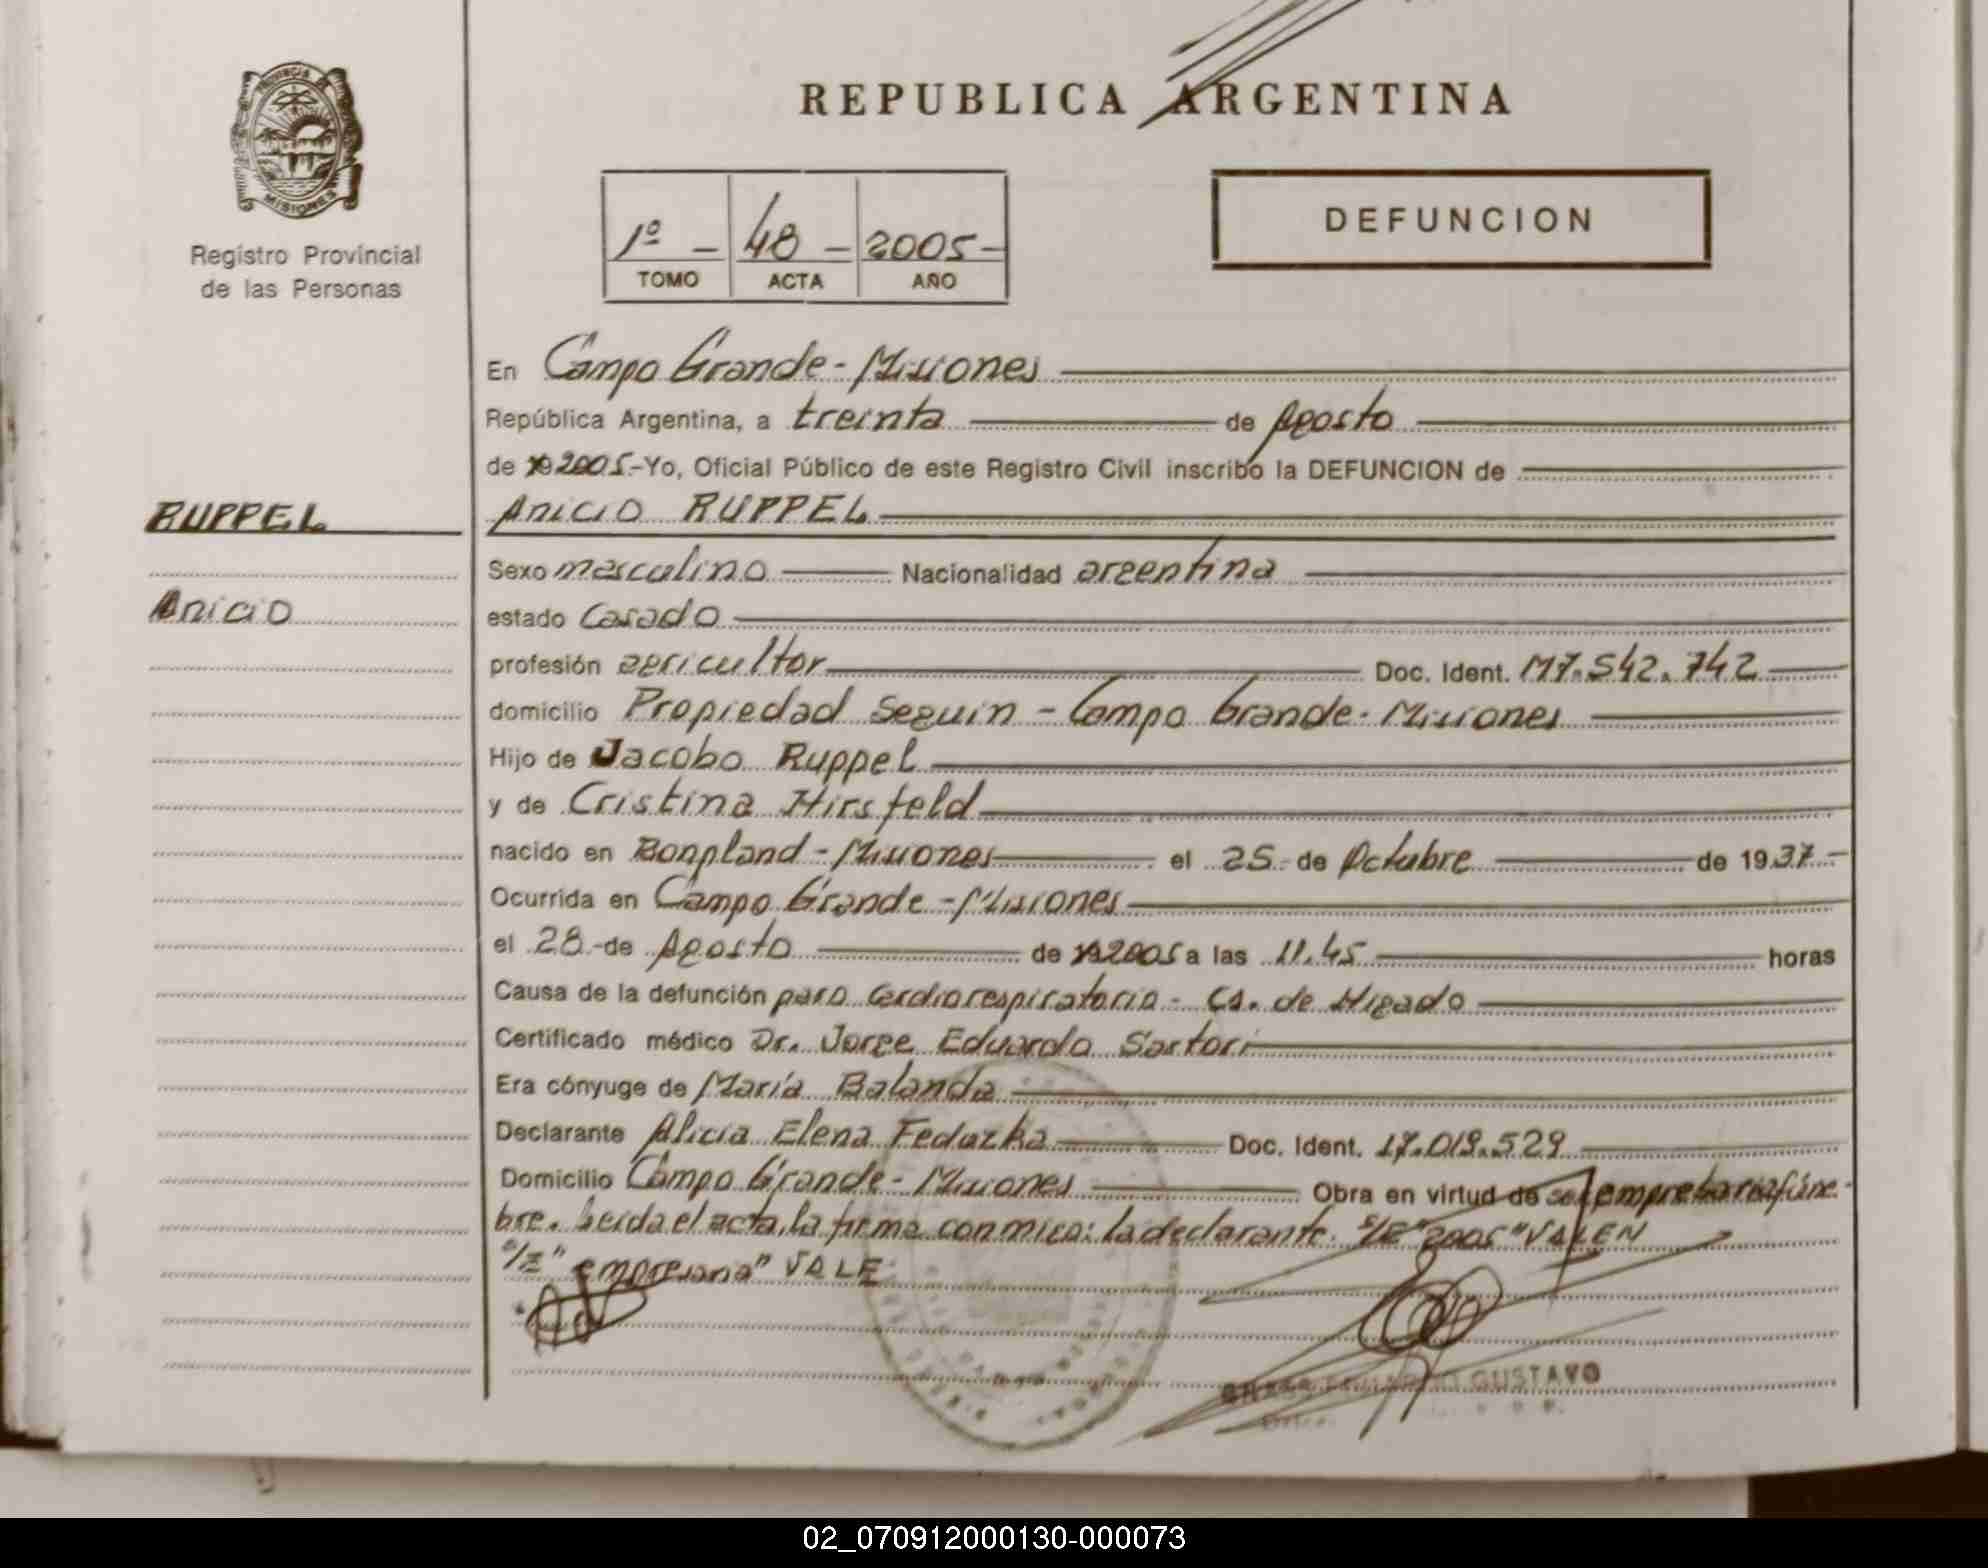 PROVINCIA DE
MISIONES
Registro Provincial
de las Personas
REPUBLICA ARGENTINA
1º - 48 - 2005-
TOMO ACTA AÑO
DEFUNCION
En Campo Grande - Misiones
República Argentina, a treinta de Agosto
de 192005.- Yo, Oficial Público de este Registro Civil inscribo la DEFUNCION de
RUPPEL
Anicio RUPPEL
Sexo masculino Nacionalidad argentina
Anicio
estado Casado
profesión agricultor Doc. Ident. M7.542.742
domicilio Propiedad Seguin - Campo Grande - Misiones
Hijo de Jacobo Ruppel
y de Cristina Hirsfeld
nacido en Bonpland - Misiones el 25.- de Octubre de 1937.-
Ocurrida en Campo Grande - Misiones
el 28.- de Agosto de 192005 a las 11.45 horas
Causa de la defunción paro Cardiorespiratorio - Ca. de Higado
Certificado médico Dr. Jorge Eduardo Sartori
Era cónyuge de María Balanda
Declarante Alicia Elena Feduzka Doc. Ident. 17.019.529
Domicilio Campo Grande - Misiones Obra en virtud de ser empresaria fúne-
bre. Leida el acta, la firma conmigo: la declarante. S/E "2005" VALEN
S/E "empresaria" VALE
GUSTAVO
02_070912000130-000073